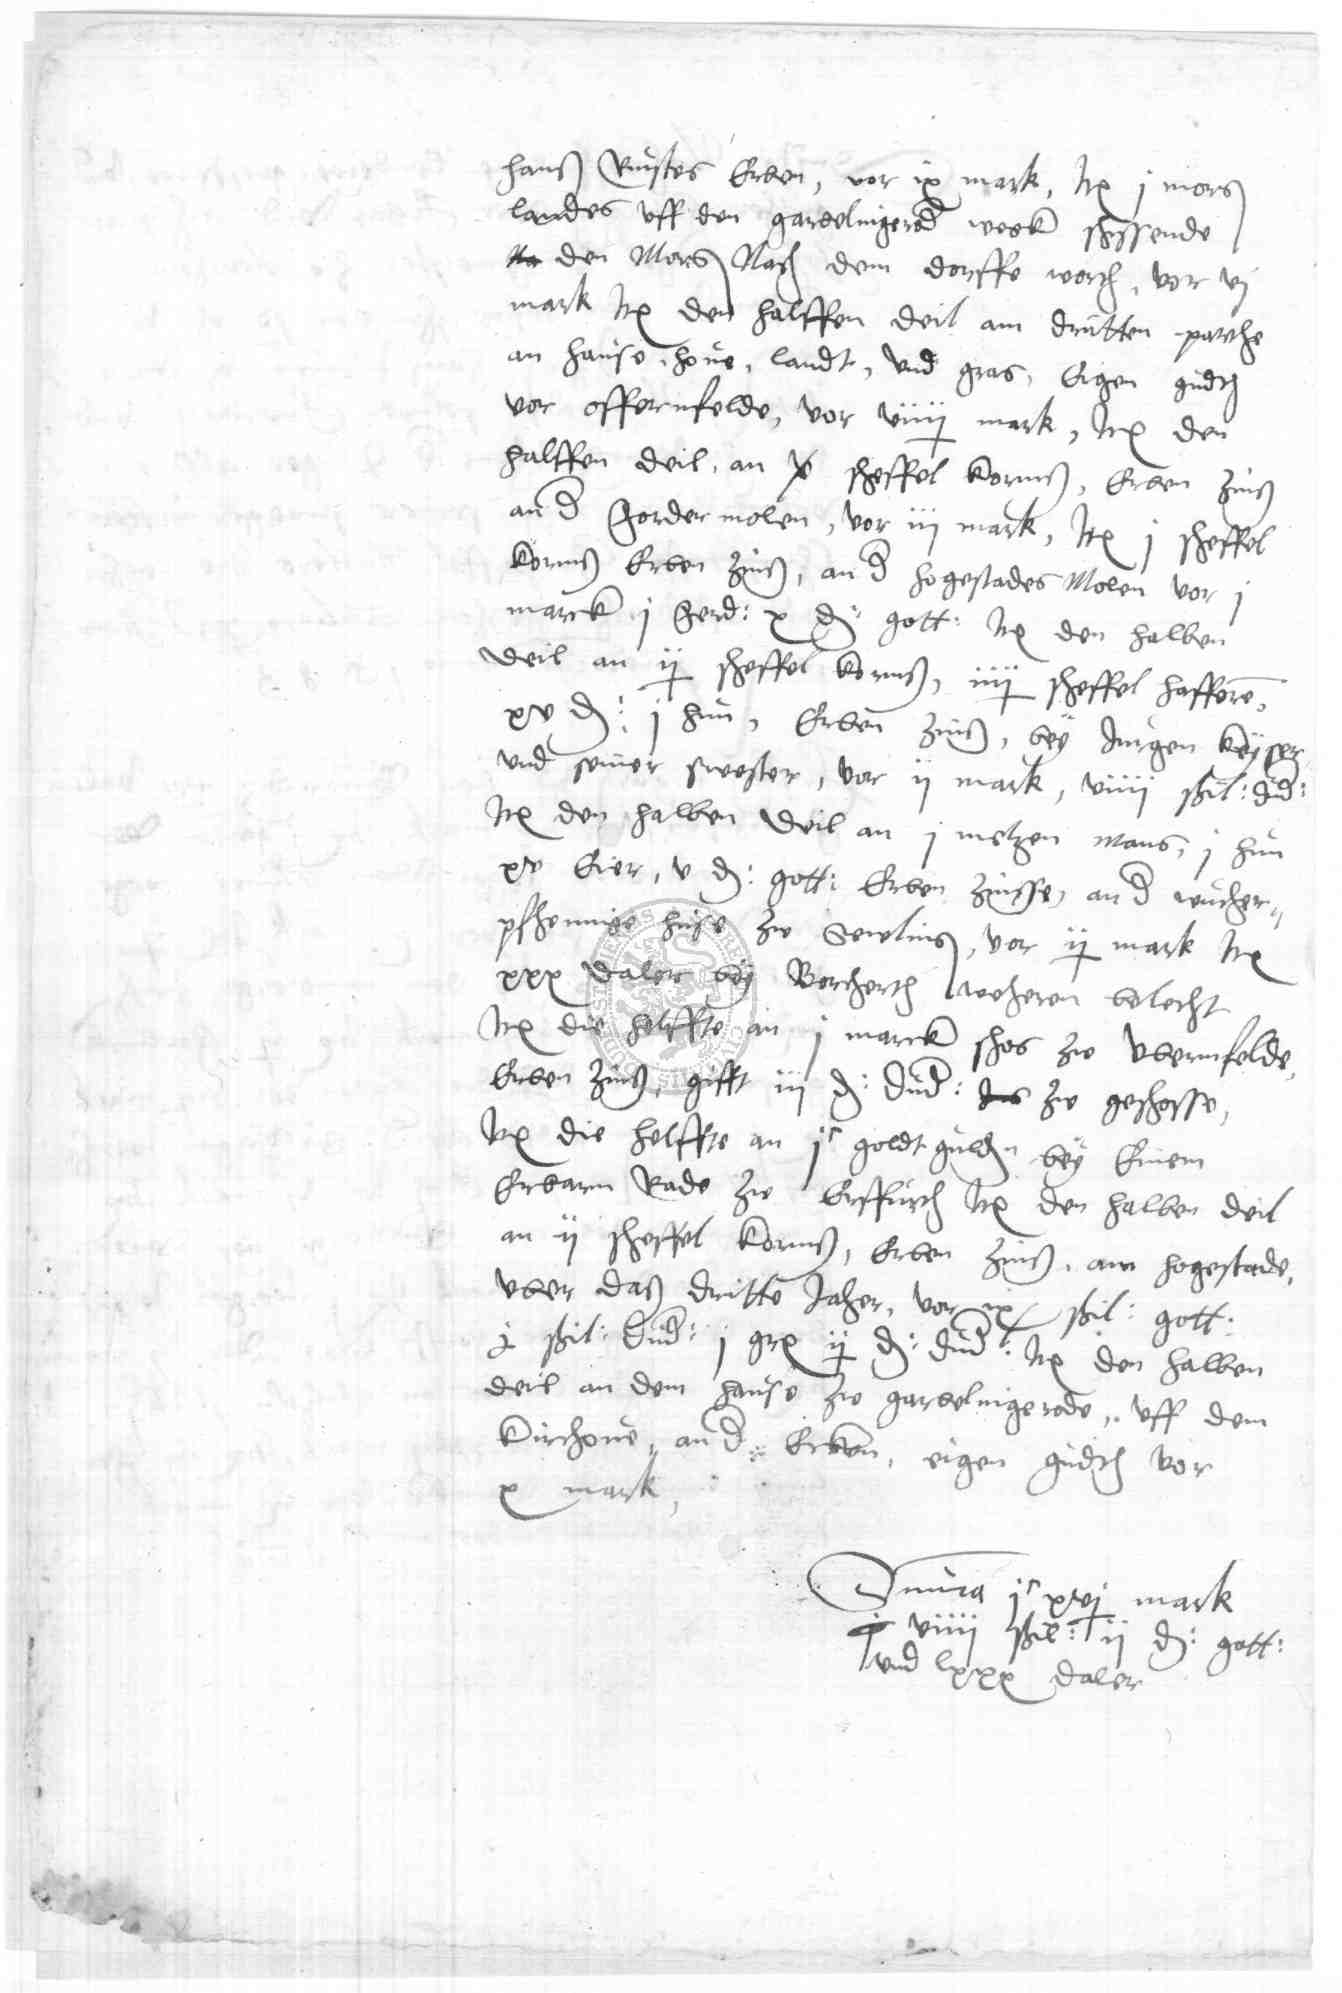 hanß Rustes Erben, vor ix mark, Itē j morß
landes uff den gardelingerod weck schissende
den Morß Nach dem dorffe worth, vor vj
mark Itē den halffen deil am drutten parthe
an hause, houe, landt, und gras, Eigen gudth
vor offernfelde, vor viiij mark, Itē den
halffen deil, an scheffel kornß, Erben zinß
an d forder molen, vor iij mark, Itē j scheffel
kornß Erben zinß, an d hogestades Molen vor j
marck j ferd: x d: gott: Itē den halben
deil an ij scheffel kornß, iiij scheffel hafferē,
xv d: j hun, Erben zinß, bey Jurgen Keyser
und seiner swester, vor ij mark, viiij schil: dud:
Itē den halben deil an j metzen mans, j hun
xv Eier, v d: gott: Erben zinsse, an d wucher„
pfhennige huse zw Seulniß, vor ij mark Itē
xxx daler bey Borcherth weheren belecht
Itē die helffte an j marck schos zw Ubernfelde,
Erben zinß, gifft iij d: dud: zw geschosse,
Itē die helffte an jc goldt guldēn bey Einem
Erbarn Rade zw Erffurth Itē den halben deil
an ij scheffel kornß, Erben zinß, am hogestade,
uber daß dritte Jaher, vor ix schil: gott:
schil: dud: j gr ij d: dud: Itē den halben
deil an dem hause zw gardelingerode, uff dem
kirchoue, an d Ecken, eigen gudth vor
x mark,
Summa jc xvj mark
viiij schil: ij d: gott:
und lxxx daler